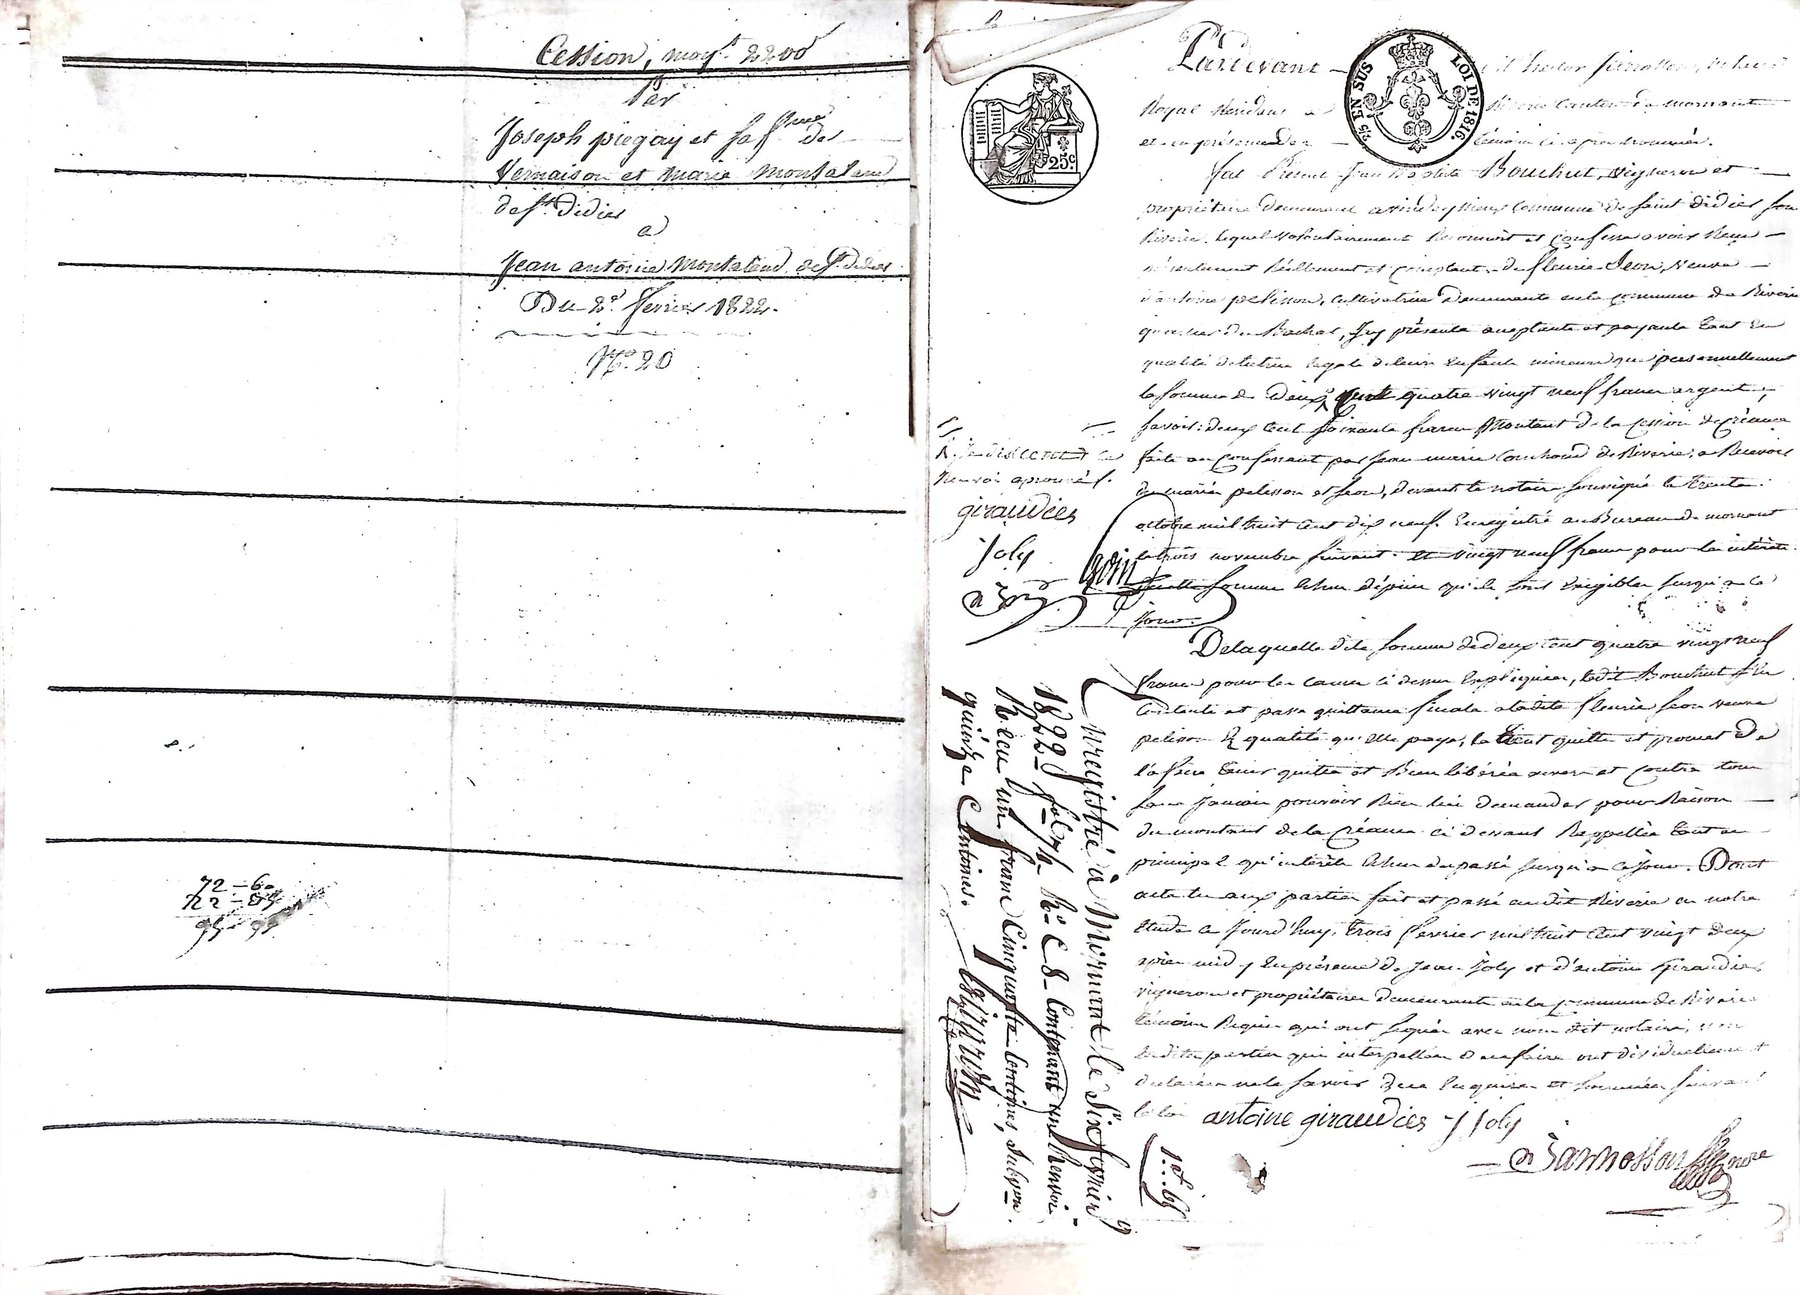 Cession, moy.t 2200f
Par
Joseph piegay et sa f.me de
Vernaison et Marie Montaland
de S.t Didier
a
Jean antoine Montaland de S.t Didier
Du 2 fevrier 1822.
N.o 20
72 - 60
22 -
95 -
25.c
25 EN SUS
LOI DE 1816.
Pardevant
Royal Canton de mornant
et en présence des témoins ci après nommés.
fut Présent Jean Baptiste Bouchut, vigneron et
propriétaire demeurant a commune de Saint didier sous
Riverie, lequel volontairement Reconnoit et Confesse avoir Reçu
présentement Réellement et comptant, de fleurie Seon, veuve
d'antoine pelisson, cultivatrice Demeurante en la commune de Riverie
quartier du Rochat, Icy présente acceptante et payante tant en
qualité de tutrice legale de leurs enfants mineurs que personnellement
la somme de Deux Cent quatre vingt neuf francs argent,
savoir: deux Cent soixante francs Montant de la Cession de Créance
faite au Confessant par Jean marie Couchoud de Riverie, a Recevoir
de mariés pelisson et Seon, devant le notaire soussigné le trente
octobre mil huit cent dix neuf. Enregistré au Bureau de mornant
le trois novembre suivant. et vingt neuf francs pour les intérêts
de cette somme échus depuis qu'ils sont exigibles jusqu'a ce
jour.
De laquelle dite somme de deux Cent quatre vingt neuf
francs pour les causes ci dessus expliquées, ledit Bouchut se
Contente et passe quittance finale a ladite fleurie Seon veuve
pelisson Es qualité qu'elle paye, la tient quitte et promet de
l'a faire tenir quitte et Bien libérée envers et contre tous
sans Jamais pouvoir Rien lui demander pour Raison
du montant de la Créance ci devant Rappellée tant en
principal qu'intérêts échus du passé jusqu'a ce jour. Dont
acte lu aux parties fait et passé audit Riverie en notre
étude a Jourd'huy, trois fevrier mil huit cent vingt deux
après midy En présence de Jean Joly et d'antoine Giraudier
vignerons et propriétaires demeurants en la commune de Riverie
témoins Requis qui ont signé avec nous dit notaire, non
lesdites parties qui interpellées de ce faire ont dividuellement
déclaré ne le savoir De ce Enquises et sommées suivant
la loi
antoine giraudier J Joly
Jannosson nore
renvoi aprouvé.
giraudier
Joly
Enregistré à Mornant le Six fevrier
1822 fol. 74 R.o C 8 Contenant un Renvoi
Reçu un franc Cinquante Centimes, Subv.on
quinze Centimes.
1.f 65